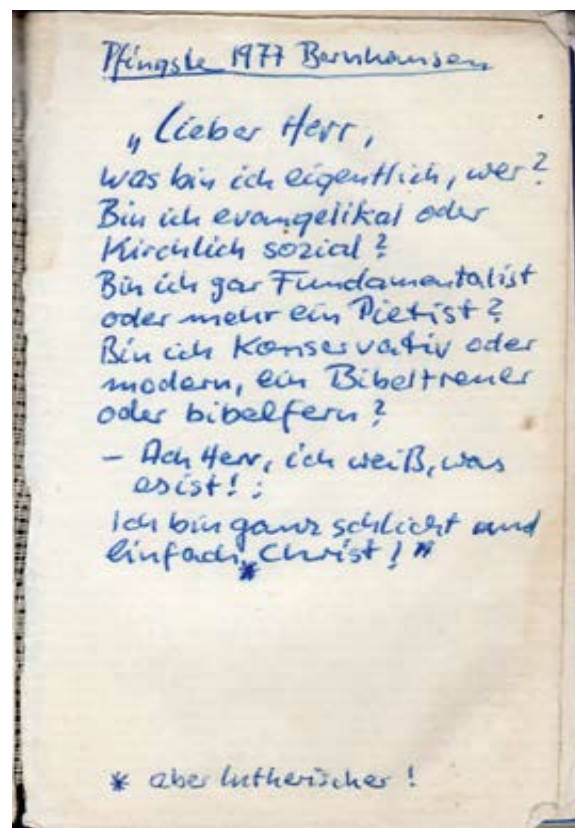 Pfingste 1977 Bernhausen
„Lieber Herr,
was bin ich eigentlich, wer?
Bin ich evangelikal oder
Kirchlich sozial?
Bin ich gar Fundamentalist
oder mehr ein Pietist?
Bin ich Konservativ oder
modern, ein Bibeltreuer
oder bibelfern?
– Ach Herr, ich weiß, was
es ist! :
Ich bin ganz schlicht und
einfach * Christ! "
* aber lutherischer!